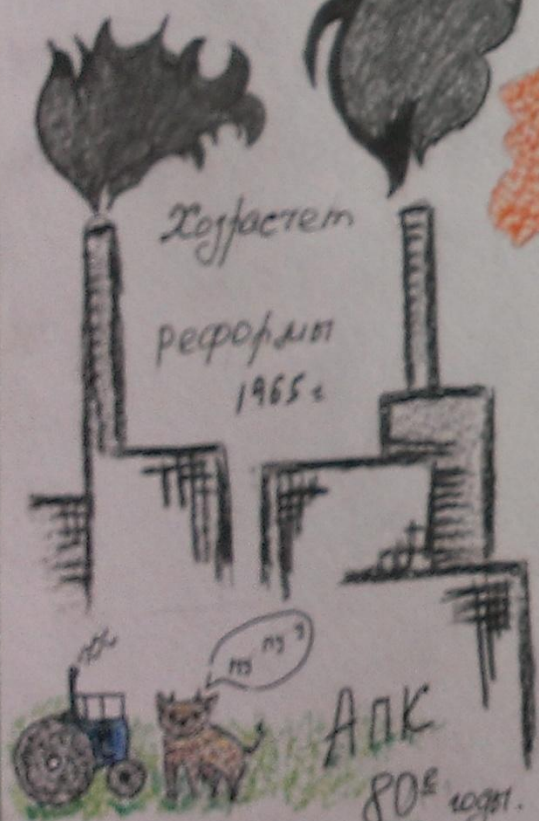 Хозрасчет
реформы
1965 г
му му у
АПК
80е годы.